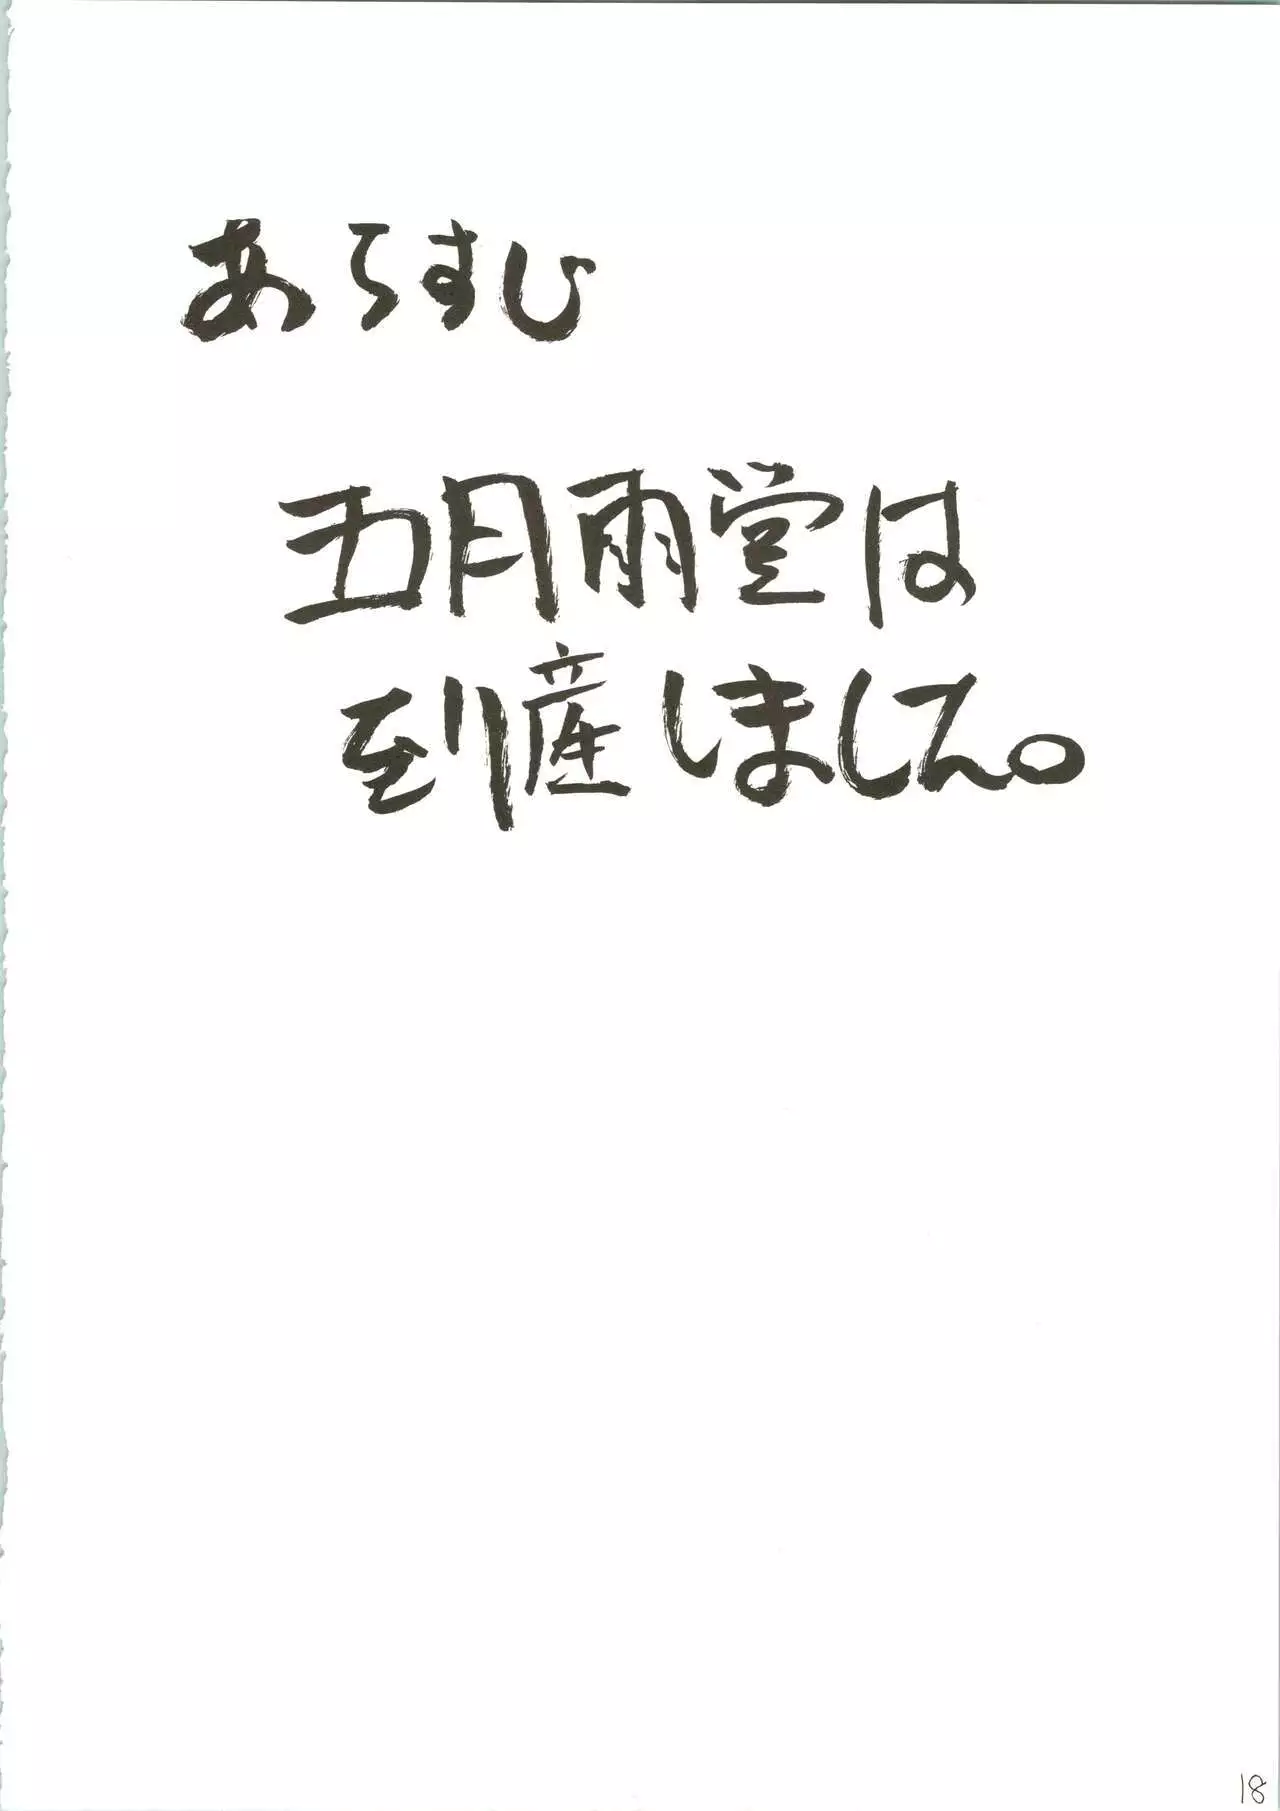 あらすじ
五月雨堂は
到産しましてん。
18